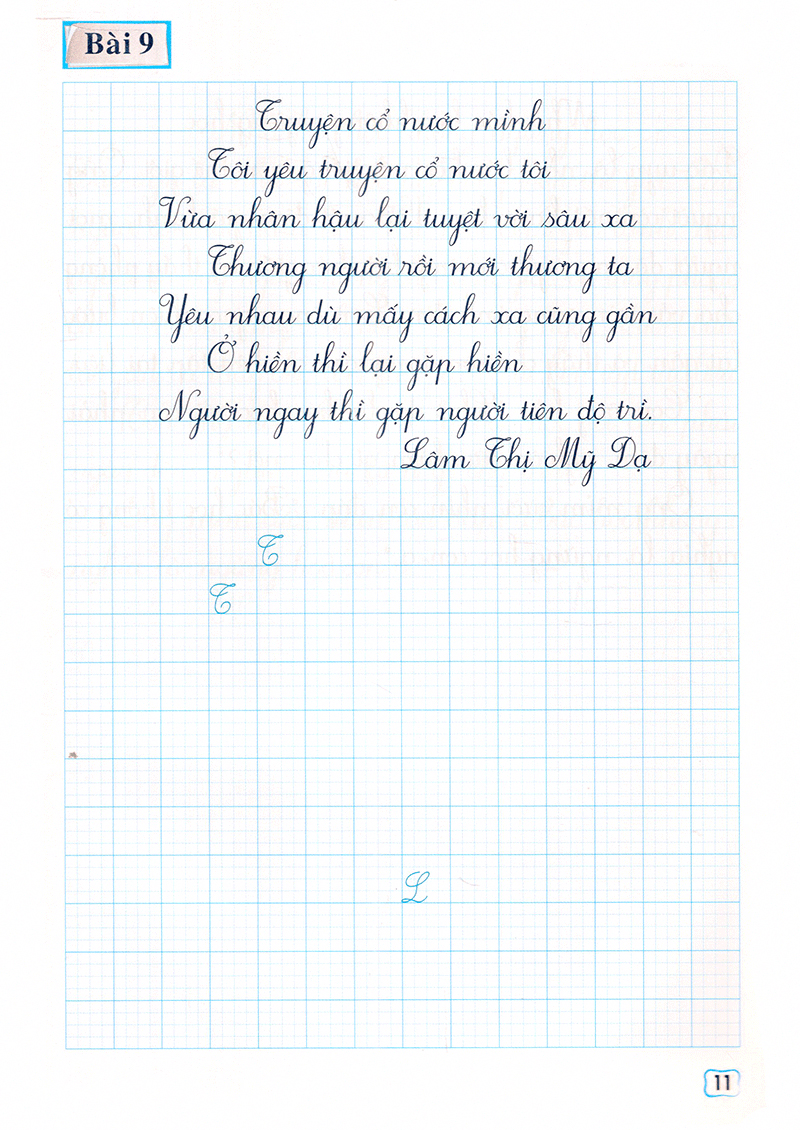 Bài 9
Truyện cổ nước mình
Tôi yêu truyện cổ nước tôi
Vừa nhân hậu lại tuyệt vời sâu xa
Thương người rồi mới thương ta
Yêu nhau dù mấy cách xa cũng gần
Ở hiền thì lại gặp hiền
Người ngay thì gặp người tiên độ trì.
Lâm Thị Mỹ Dạ
T
T
L
11